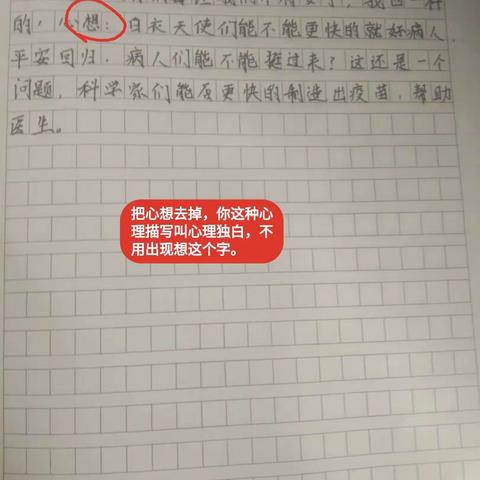 我也一样
的，心想：白衣天使们能不能更快的就好病人，
平安回归，病人们能不能挺过来？这还是一个
问题，科学家们能否更快的制造出疫苗，帮助
医生。
把心想去掉，你这种心
理描写叫心理独白，不
用出现想这个字。